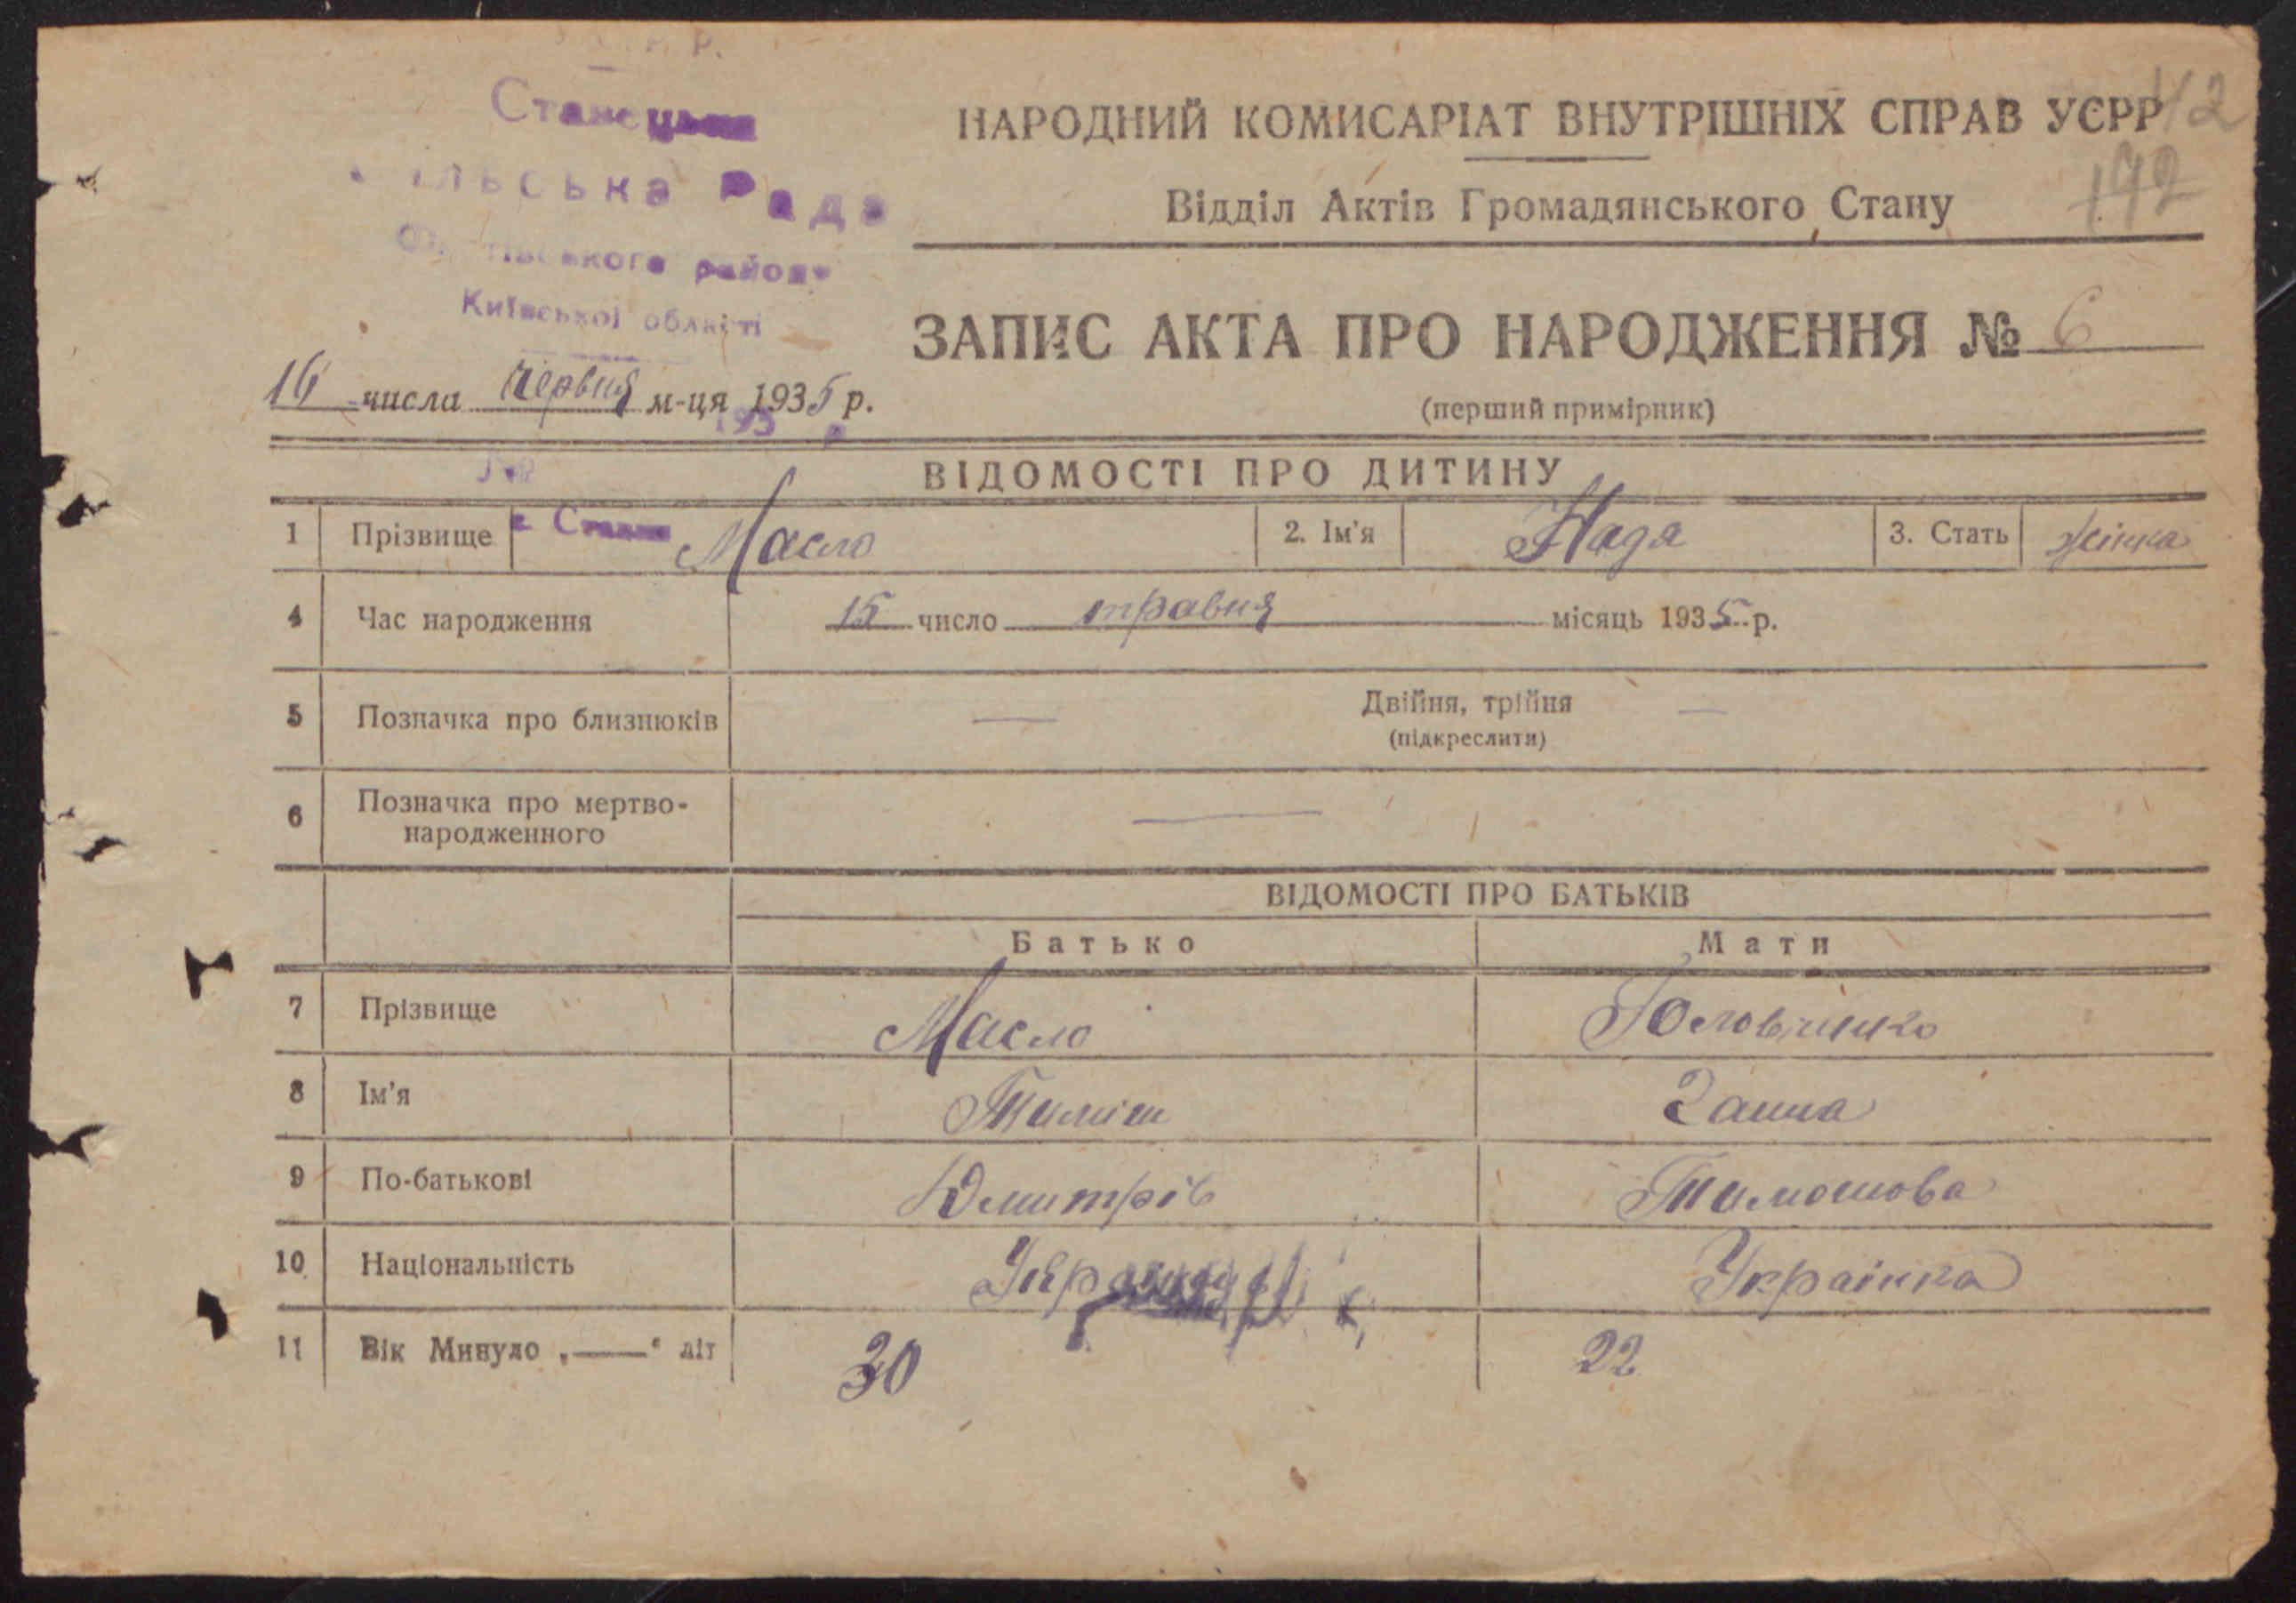 НАРОДНИЙ КОМИСАРІАТ ВНУТРІШНІХ СПРАВ УЄРР
Відділ Актів Громадянського Стану
Рада
району
Київської області
ЗАПИС АКТА ПРО НАРОДЖЕННЯ № 6
16 числа червня м-ця 1935 р.
(перший примірник)
ВІДОМОСТІ ПРО ДИТИНУ
1 Прізвище Масло 2. Ім'я Надя 3. Стать жінка
4 Час народження 15 число травня місяць 1935 р.
5 Позначка про близнюків — Двійня, трійня —
(підкреслити)
6 Позначка про мертво-
народженного —
ВІДОМОСТІ ПРО БАТЬКІВ
Батько Мати
7 Прізвище Масло
8 Ім'я Тиміш Ганна
9 По-батькові Дмитрів Тимошова
10 Національність Українка
11 Вік Минуло „——“ літ 30 22